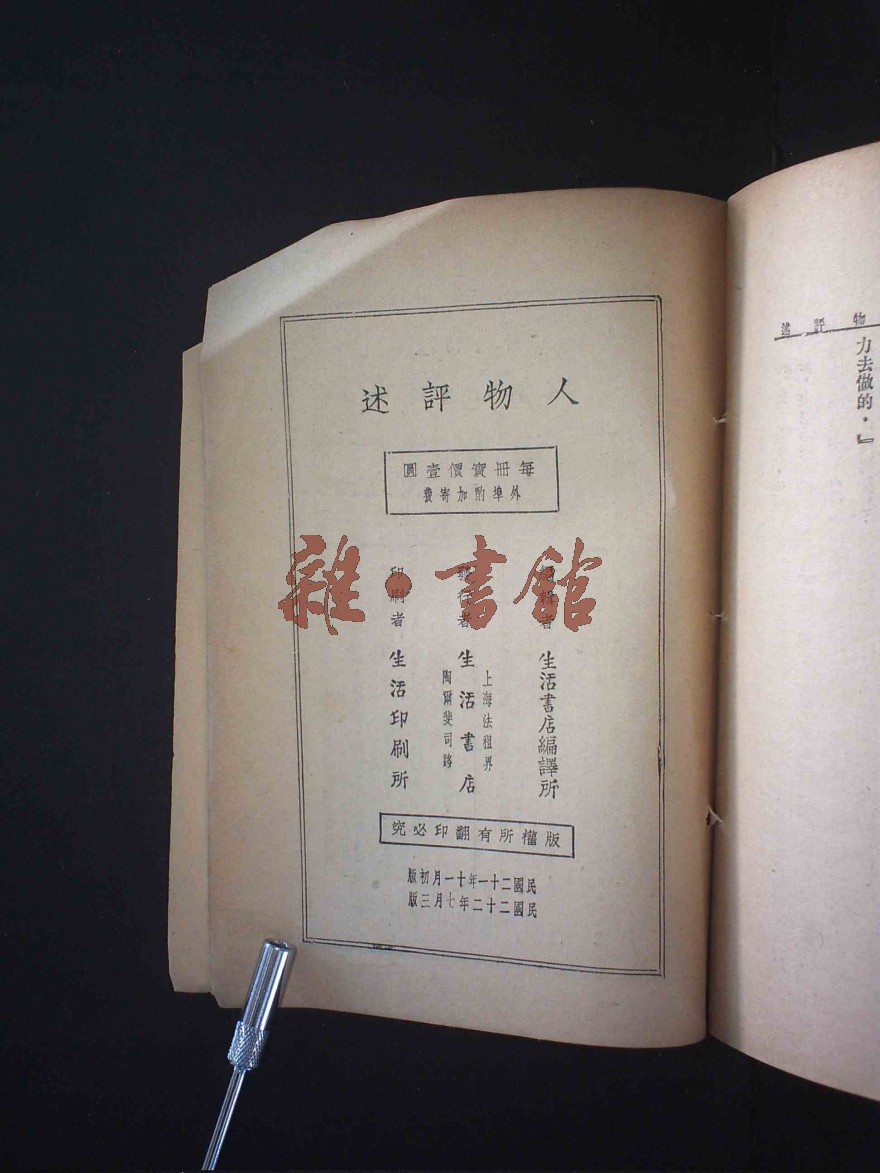 人物評述
每冊實價壹圓
外埠酌加寄費
編輯者 生活書店編譯所
發行者 生活書店
上海法租界
陶爾斐司路
印刷者 生活印刷所
版權所有翻印必究
民國二十一年十一月初版
民國二十二年七月三版
雜·書館
物評述
力去做的．』